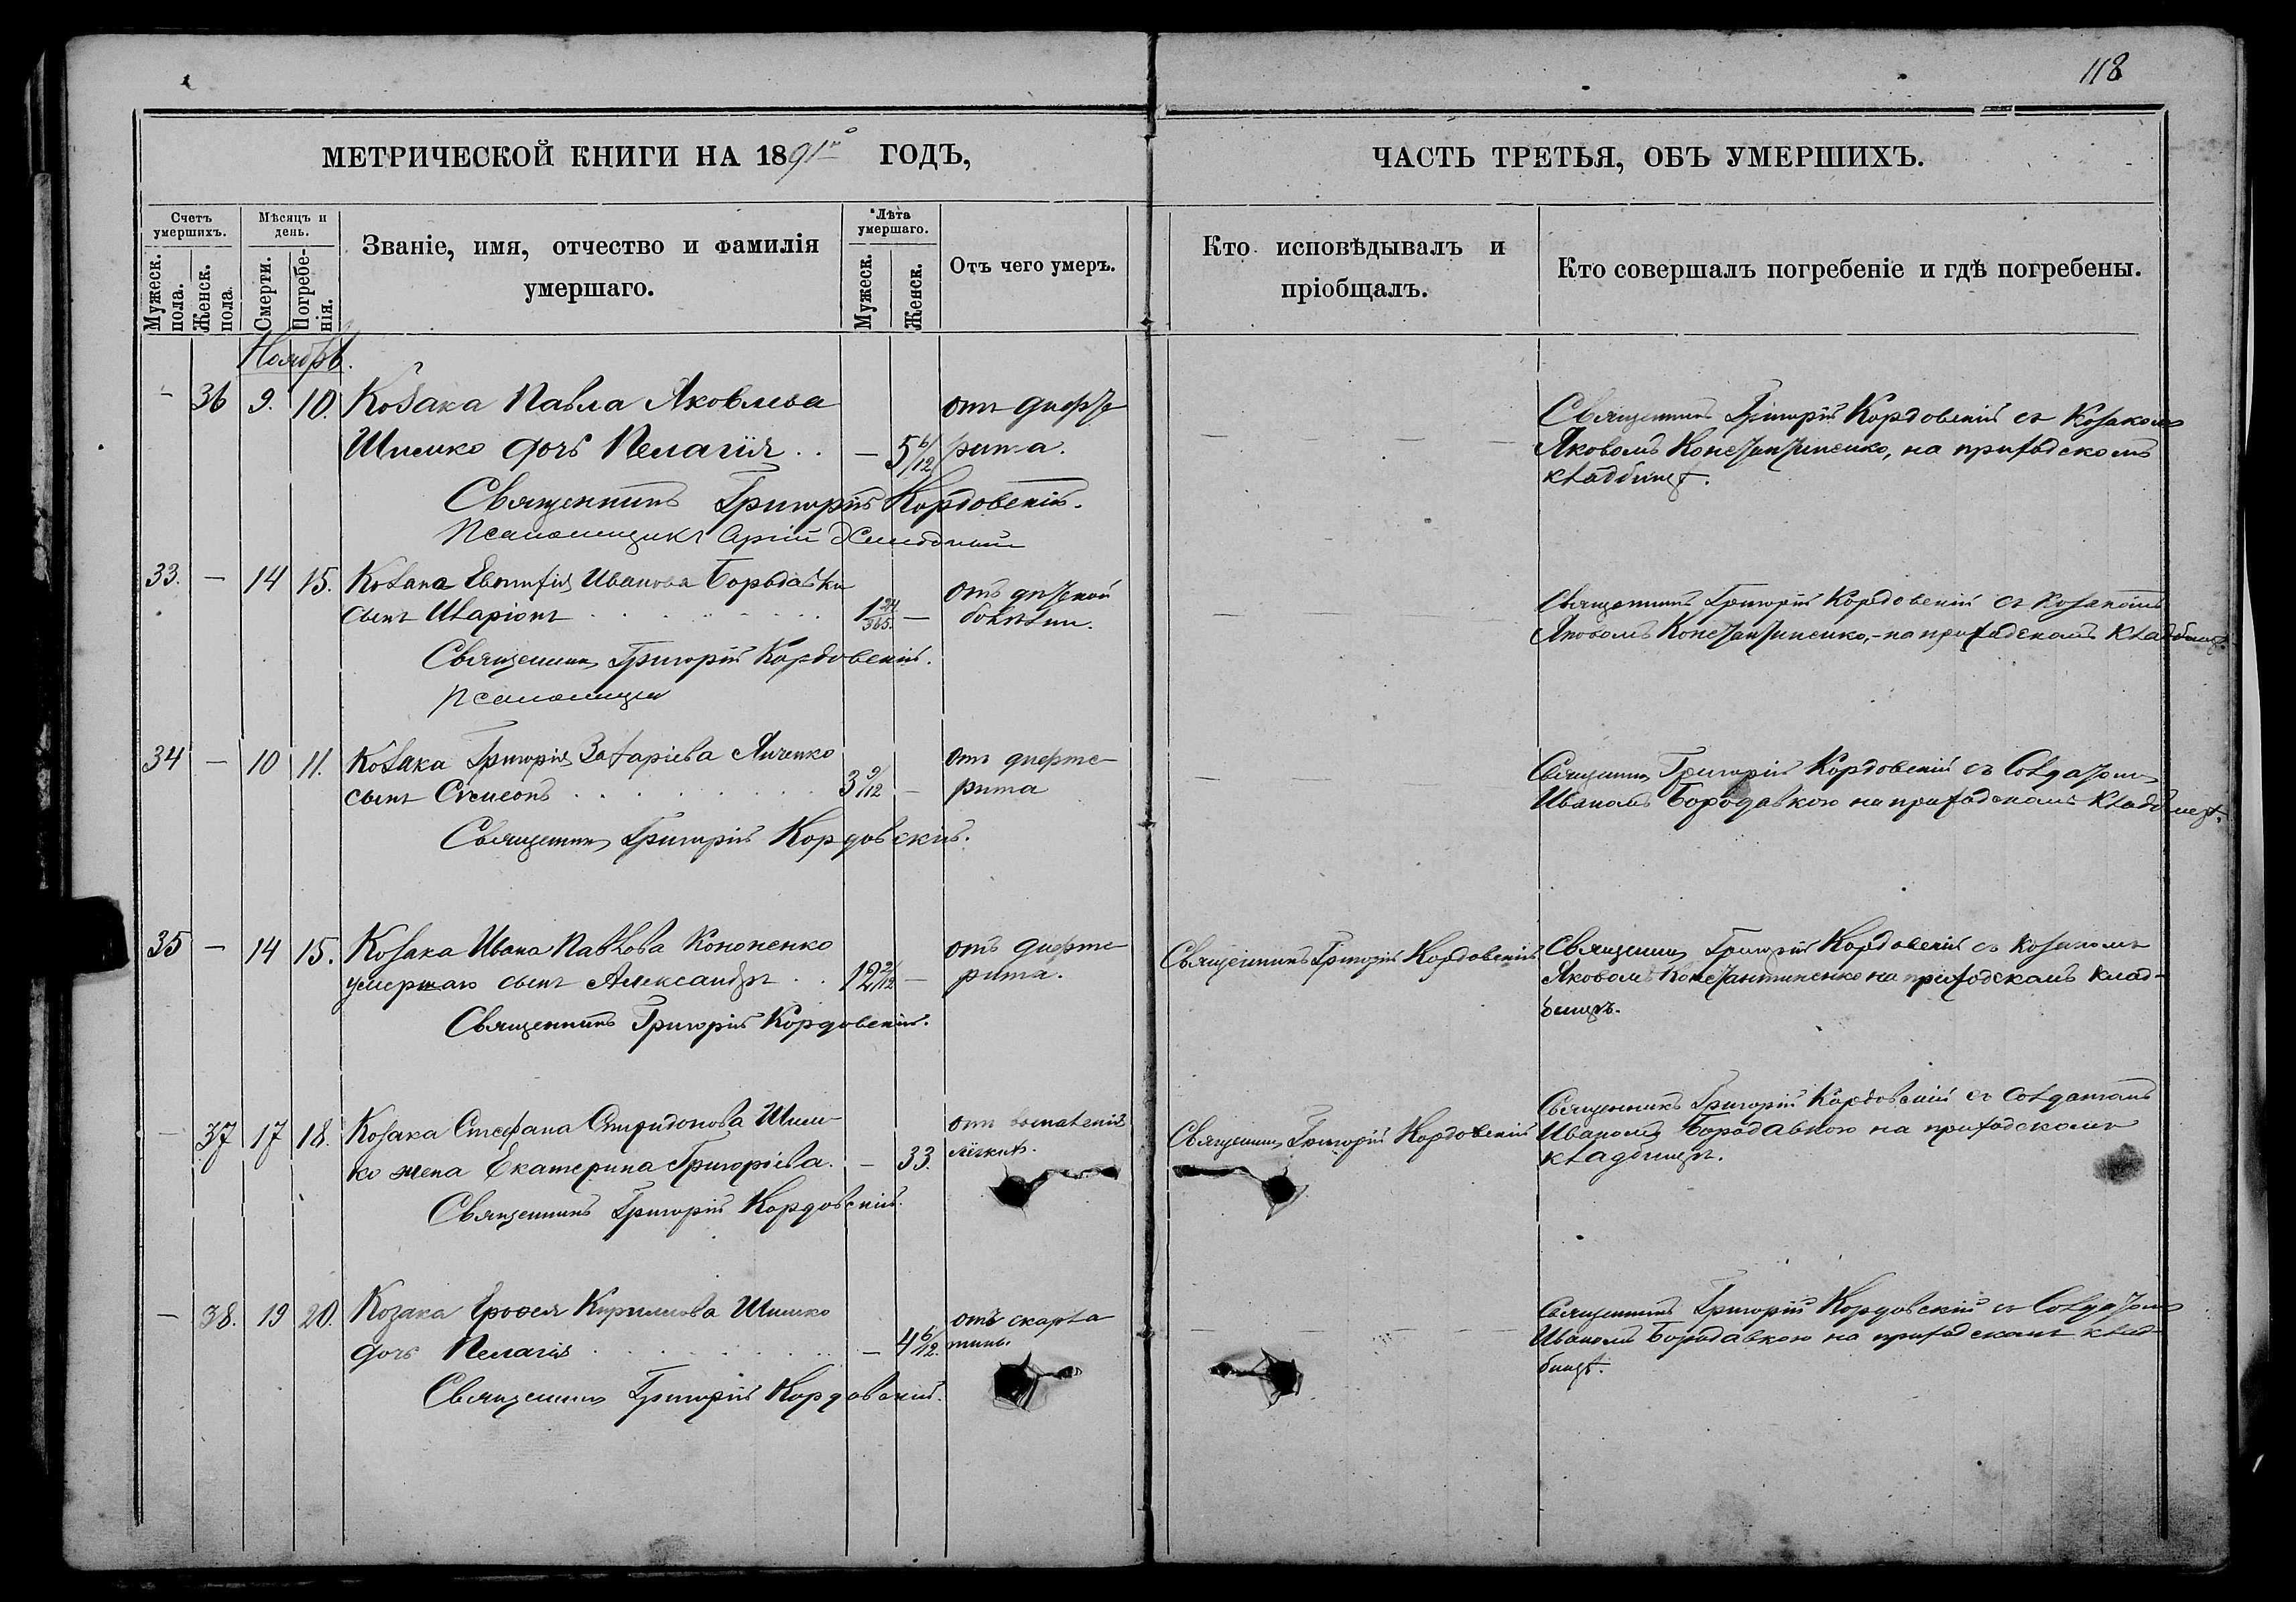 118
МЕТРИЧЕСКОЙ КНИГИ НА 1891й ГОДЪ,
ЧАСТЬ ТРЕТЬЯ, ОБЪ УМЕРШИХЪ.
Счетъ умершихъ.
Мужеск. пола.
Женск. пола
Мѣсяцъ и день.
Смерти.
Погребе-нія.
Званіе, имя, отчество и фамилія
умершаго.
Лѣта умершаго.
Мужеск.
Женск.
Отъ чего умеръ.
Кто исповѣдывалъ и
пріобщалъ.
Кто совершалъ погребеніе и гдѣ погребены.
Ноябрь.
— 36 9. 10. Козака Павла Яковлева
Шишко дочь Пелагія . . — 5 6/12
отъ дифте
рита.
Священникъ Григорій Кордовскій съ Козакомъ
Яковомъ Константиненко, на приходскомъ
кладбищѣ.
Священникъ Григорій Кордовскій.
Псаломщикъ
33. — 14 15. Козака Евтихія Иванова Бородавки
сынъ Иларіонъ 1 24/365. —
отъ дѣтской
болѣзни.
Священникъ Григорій Кордовскій съ Козакомъ
Яковомъ Константиненко, - на приходскомъ кладбищѣ.
Священникъ Григорій Кордовскій.
Псаломщикъ
34 — 10 11. Козака Григорія Захаріева Яченко
сынъ Симеонъ 3 9/12 —
отъ дифте-
рита
Священникъ Григорій Кордовскій съ Солдатомъ
Иваномъ Бородавкою на приходскомъ кладбищѣ.
Священникъ Григорій Кордовскій.
35 — 14 15. Козака Ивана Павлова Кононенко
умершаго сынъ Александръ . . 12 2/12 —
отъ дифте-
рита.
Священникъ Григорій Кордовскій
Священникъ Григорій Кордовскій съ Козакомъ
Яковомъ Константиненко на приходскомъ клад-
бищѣ.
Священникъ Григорій Кордовскій.
— 37 17 18. Козака Стефана Спиридонова Шиш-
ко жена Екатерина Григоріева. — 33.
отъ воспаленія
легкихъ.
Священникъ Григорій Кордовскій
Священникъ Григорій Кордовскій съ Солдатомъ
Иваномъ Бородавкою на приходскомъ
кладбищѣ.
Священникъ Григорій Кордовскій.
— 38. 19 20. Козака Ерофея Кириллова Шишко
дочь Пелагія — 4 6/12.
отъ скарла
тины.
Священникъ Григорій Кордовскій съ Солдатомъ
Иваномъ Бородавкою на приходскомъ клад-
бищѣ.
Священникъ Григорій Кордовскій.